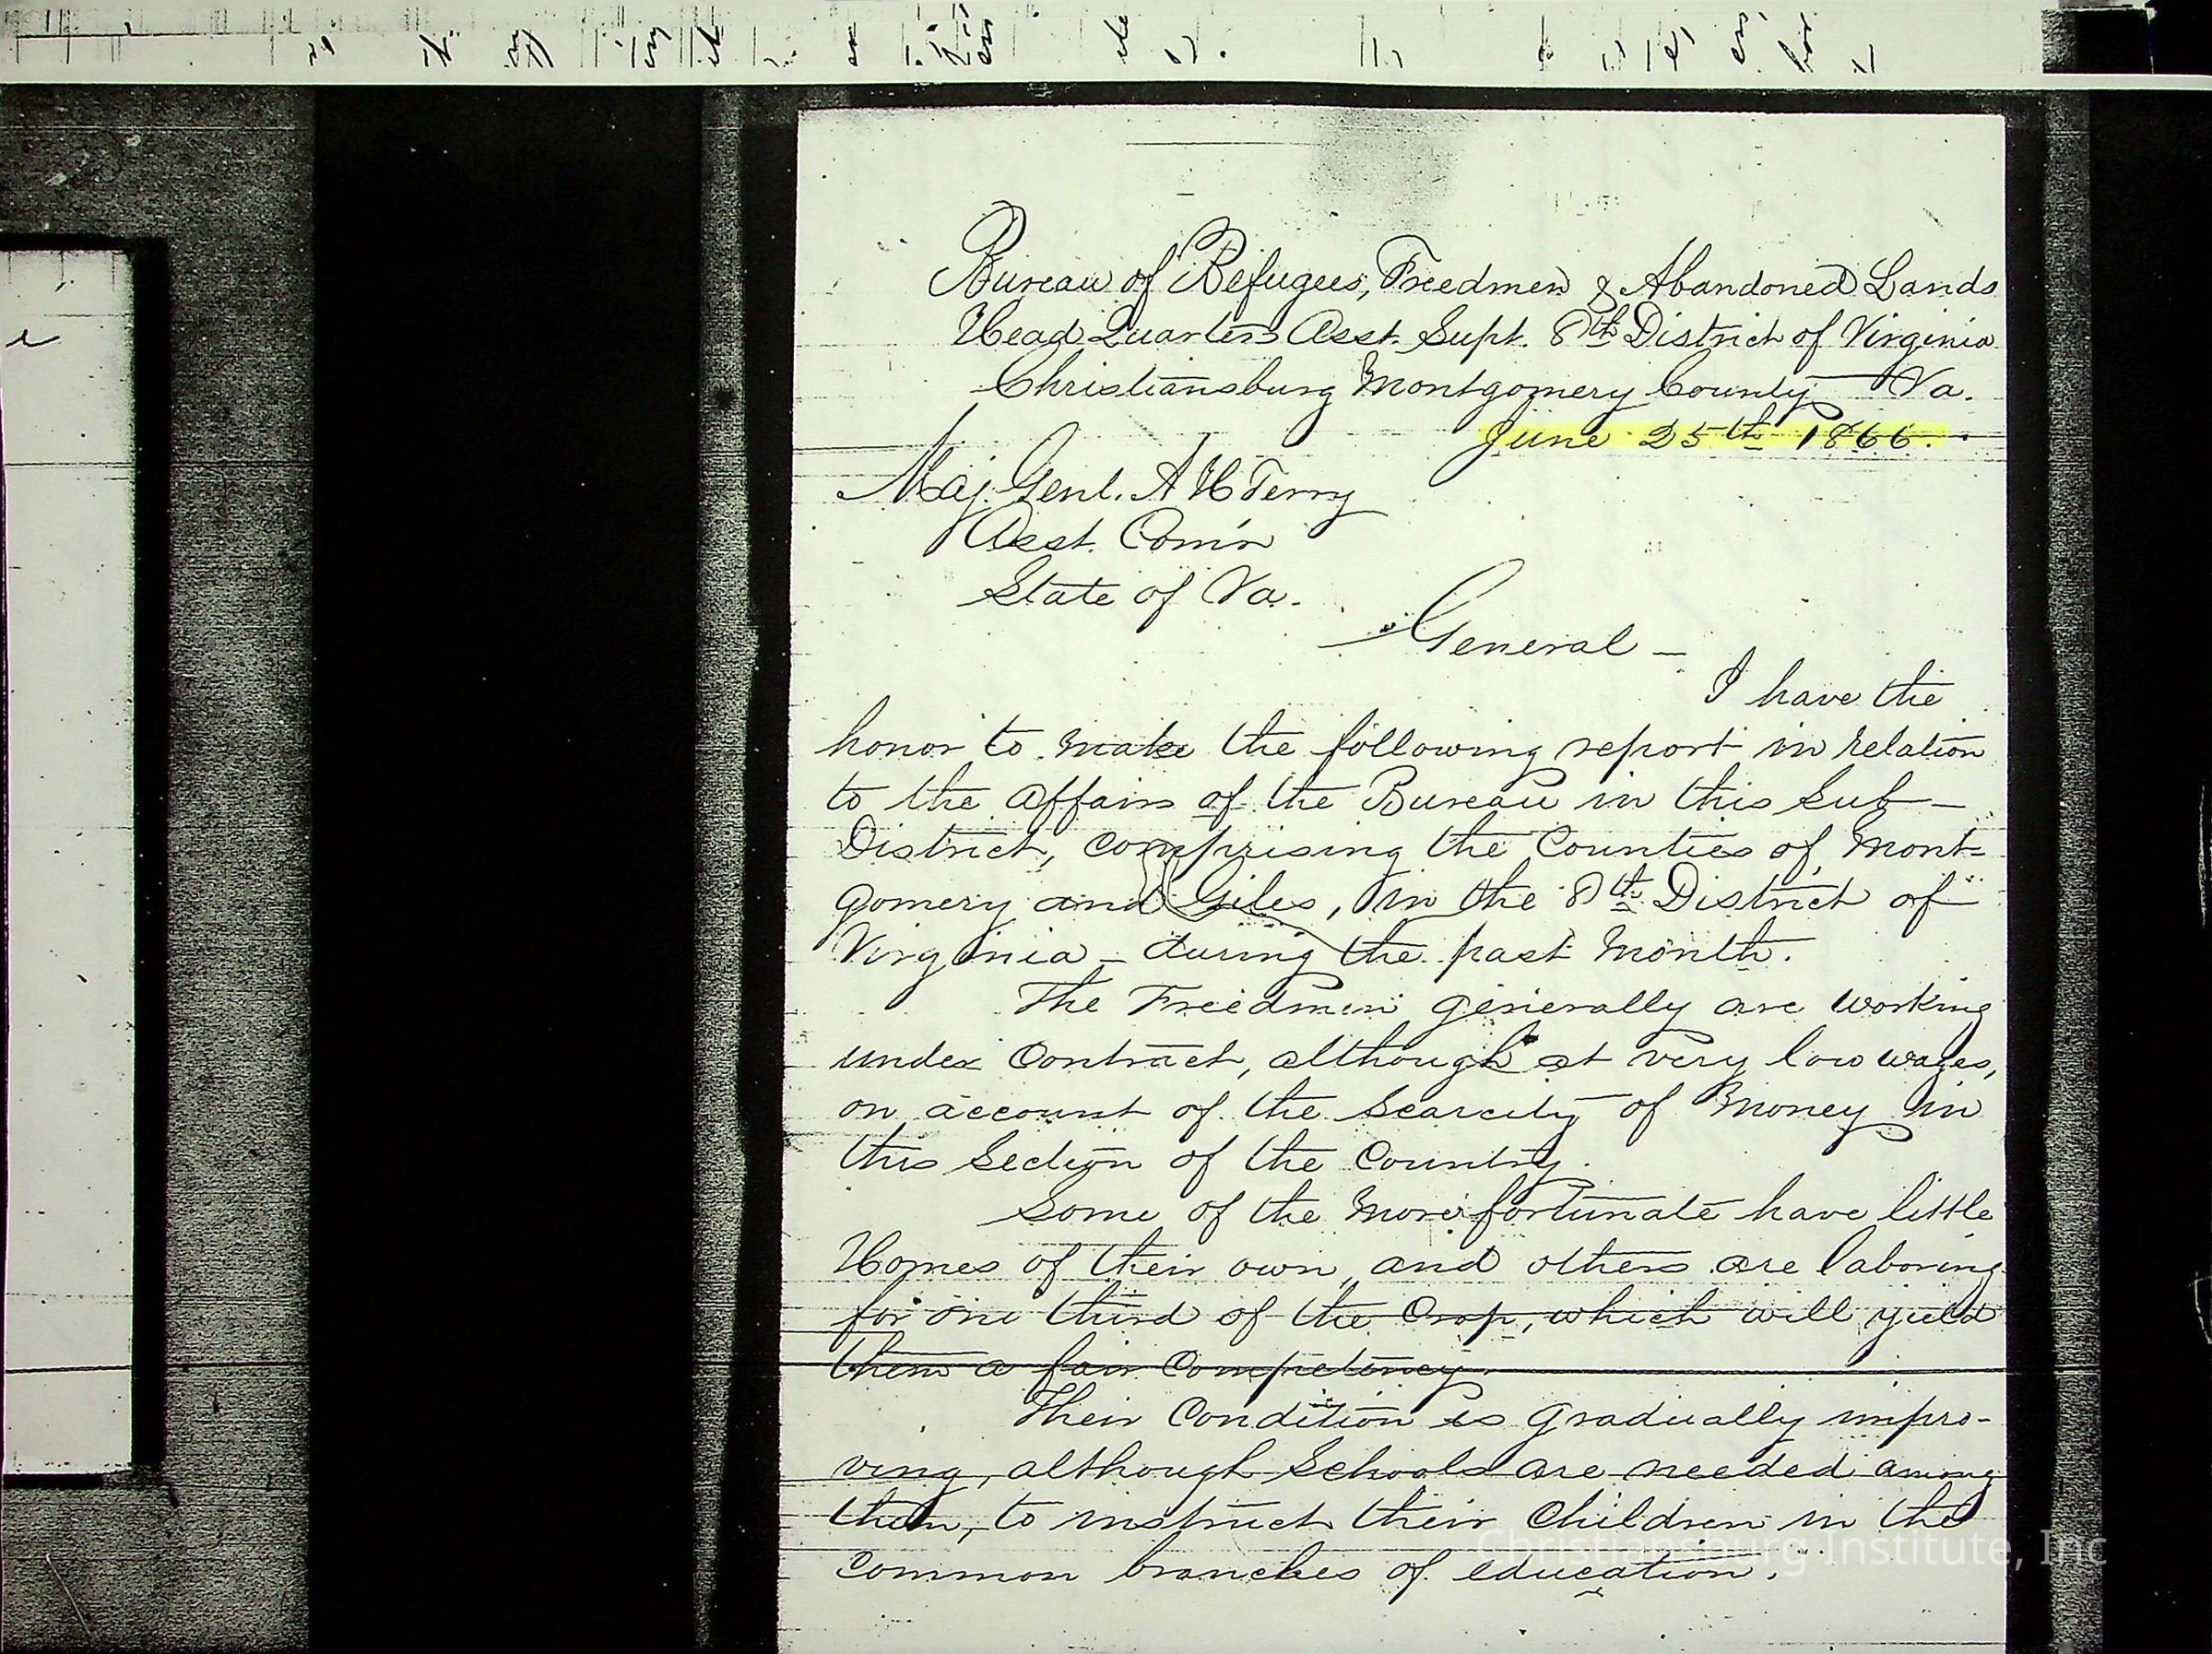 Bureau of Refugees, Freedmen & Abandoned Lands
Head Quarters Asst. Supt. 8th District of Virginia
Christiansburg Montgomery County Va.
June 25th 1866.
Maj. Genl. A H Terry
Asst. Com'r
State of Va.
General —
I have the
honor to make the following report in relation
to the affairs of the Bureau in this Sub-
District, comprising the Counties of Mont-
gomery and Giles, in the 8th District of
Virginia — during the past month.
The Freedmen generally are working
under Contract, although at very low wages,
on account of the scarcity of Money in
this Section of the Country.
Some of the more fortunate have little
Homes of their own, and others are laboring
for one third of the Crop, which will yield
them a fair Competency.
Their Condition is gradually impro-
ving, although Schools are needed among
them, to instruct their Children in the
Common branches of education.
Christiansburg Institute, Inc